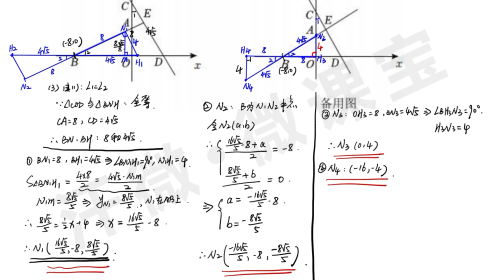 C
E
A
N₁
4√5
8√5/5
4
H₂
4√5
8
(-8,0)
B
O
H₁
D
x
N₂
C
E
A
N₃
8
4√5
4
H₄
8
4
B
(-8,0)
O
H₃
D
x
N₄
(3) 由(1): L₁=L₂
∵△COD与△BNH: 全等
CA=8, CD=4√5
∴BN、BH: 8和4√5
① BN₁=8, BH₁=4√5 ⇒ ∠BN₁H₁=90°, N₁H₁=4
S△BN₁H₁ = 4×8/2 = 4√5·N₁m/2
N₁m = 8√5/5 ⇒ yN₁ = 8√5/5, N₁在AB上
∴ 8√5/5 = 1/2x+4 ⇒ x = 16√5/5 - 8
∴N₁(16√5/5 - 8, 8√5/5)
② N₂: B为N₁N₂中点
令N₂(a,b)
∴ { (16√5/5 - 8 + a)/2 = -8
(8√5/5 + b)/2 = 0
⇒ { a = -16√5/5 - 8
b = -8√5/5
∴N₂(-16√5/5 - 8, -8√5/5)
备用图
③ N₃: OH₃=8, BN₃=4√5 ⇒ ∠BH₃N₃=90°
H₃N₃=4
∴N₃(0,4)
④ N₄: (-16,-4)